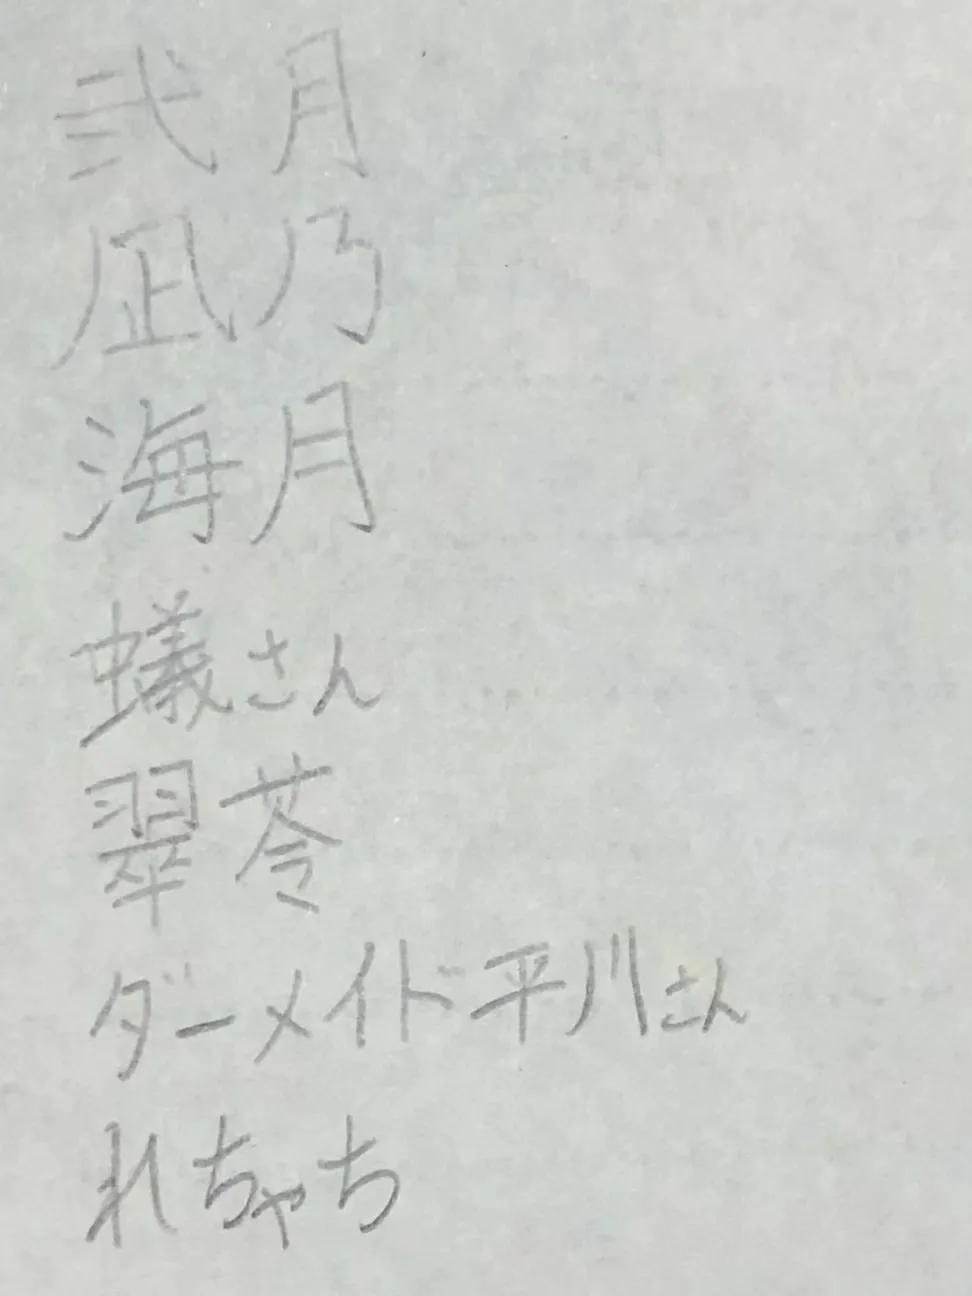 弐月
凪乃
海月
蟻さん
翠苓
ダーメイド平川さん
れちゃち